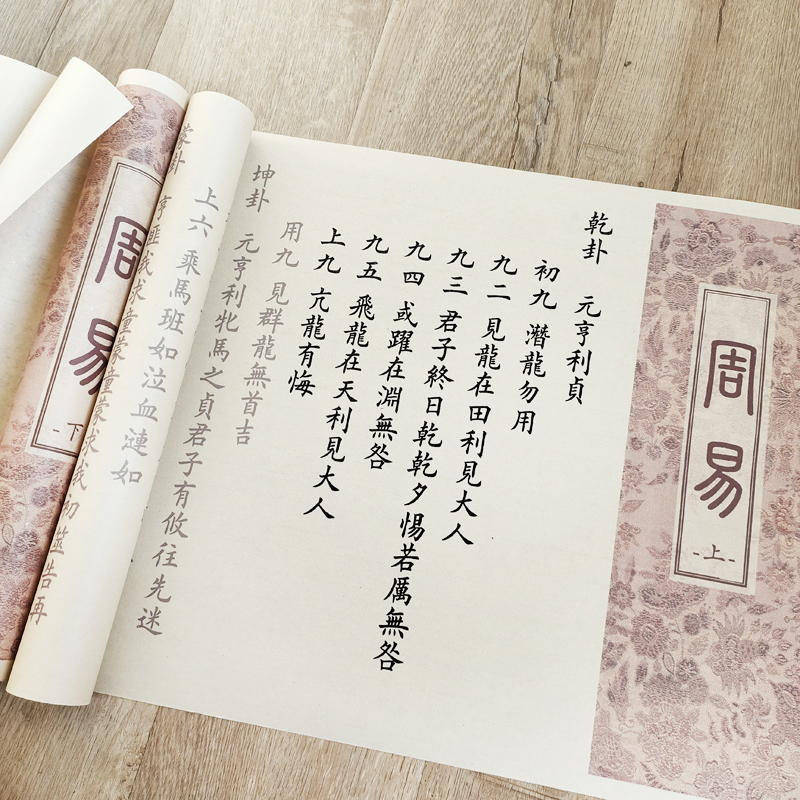 周易
-上-
乾卦 元亨利貞
初九 潛龍勿用
九二 見龍在田利見大人
九三 君子終日乾乾夕惕若厲無咎
九四 或躍在淵無咎
九五 飛龍在天利見大人
上九 亢龍有悔
用九 見群龍無首吉
坤卦 元亨利牝馬之貞君子有攸往先迷
上六 乘馬班如泣血漣如
蒙卦 亨匪我求童蒙童蒙求我初筮告再
周易
-下